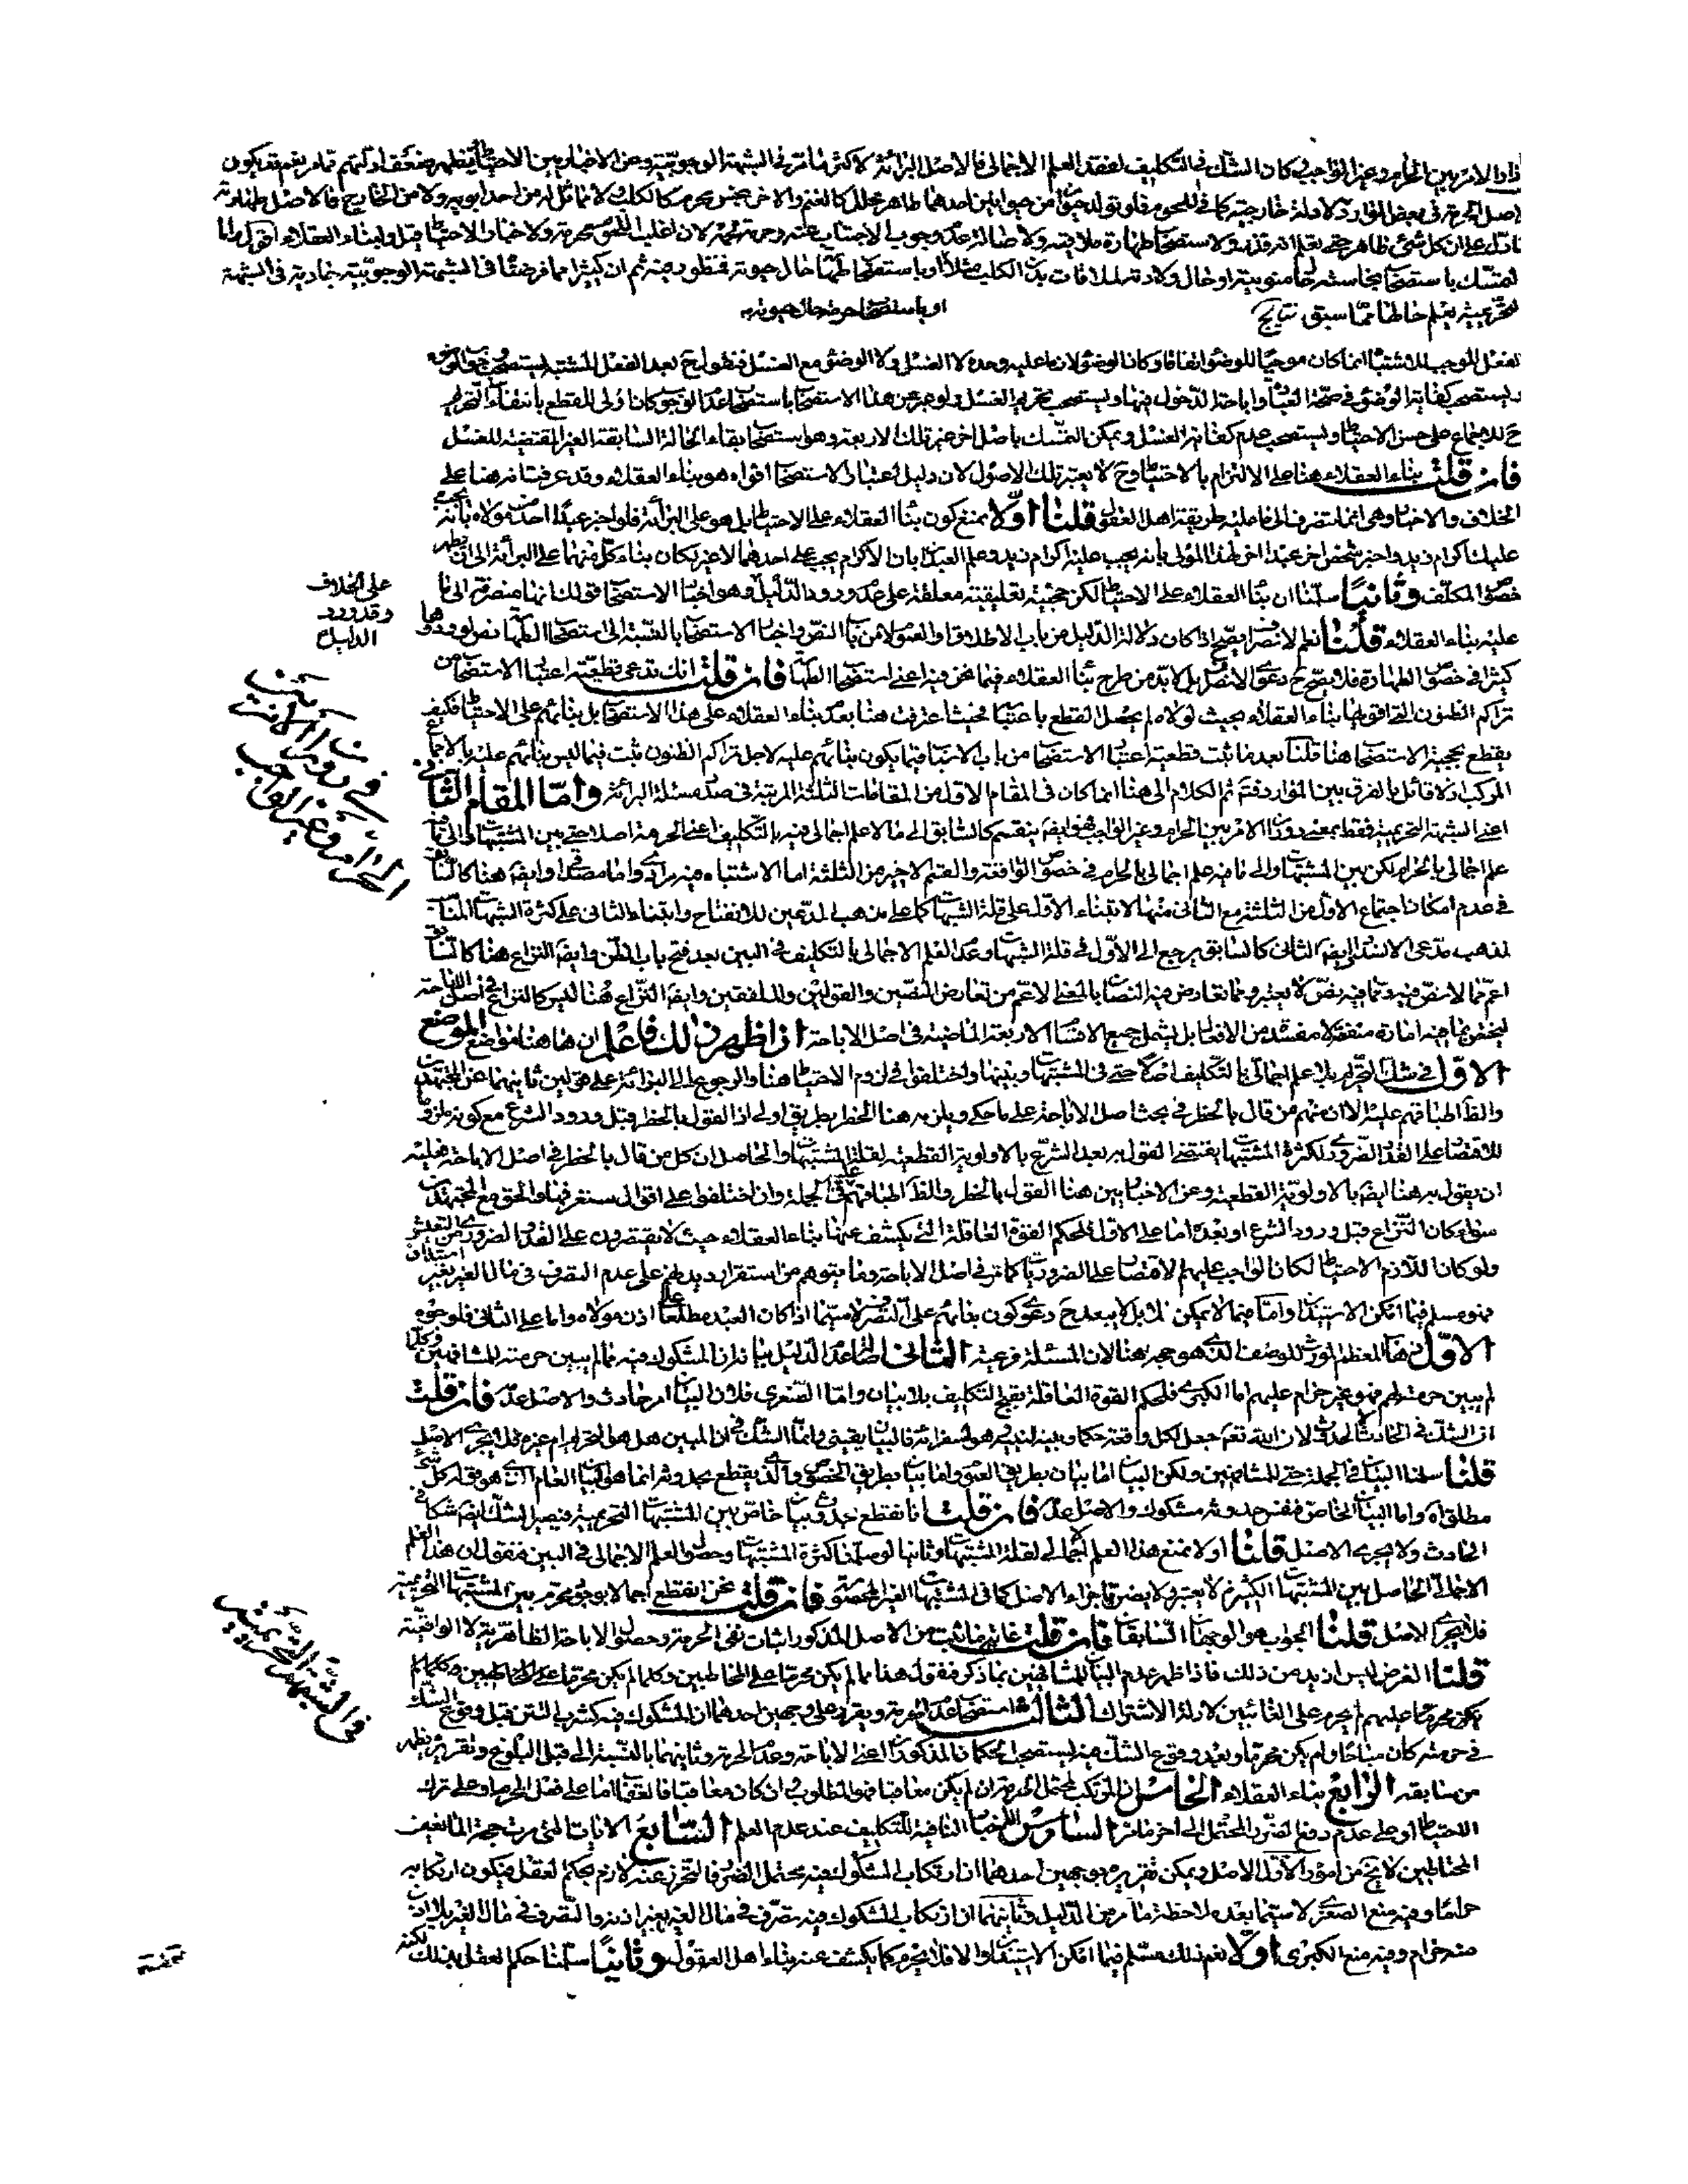 اذا دار الامر بين الحرام وغير الواجب كان الشك في التكليف لفقد العلم الاجمالي فالاصل البرائة لاكثر ما مر في الشبهة الوجوبية وعن الاخباريين الاحتياط يظهر ضعف ادلتهم مما مر نعم قد يكون
اصل الحرمة في بعض الموارد لادلة خارجية كما في اللحوم فلو تولد حيوان من حيوانين احدهما طاهر محلل كالغنم والاخر نجس محرم كالكلب لا مماثل له من احد ابويه ولا من الخارج فالاصل طهارته
على ان كل شيء طاهر حتى تعلم انه قذر ولاستصحاب طهارة ملاقيه ولاصالة عدم وجوب الاجتناب عنه وحرمة لحمه لان اغلب اللحوم محرمة
التمسك باستصحاب نجاسته حال منويته او حال ولادته لملاقات بدن الكلب مثلا او باستصحاب طهارتها حال حيوته ثم ان كثيرا مما فرضنا في الشبهة الوجوبية جارية في الشبهة
التحريمية يعلم حالها مما سبق نتايج
او باستصحاب حرمة حال حيوته
الفعل الموجب للاشتباه انما كان موجبا للوضوء اتفاقا وكان الوضوء لازما عليه وحده لا الغسل ولا الوضوء مع الغسل فنقول ح بعد الفعل المشتبه يستصحب وجوب الوضوء
ويستصحب كفاية الوضوء في صحة العبادة واباحة الدخول فيها ويستصحب تحريم الغسل ولو عبر عن هذا الاستصحاب باستصحاب عدم الوجوب كان اولى للقطع بانتفاء التحريم
ح للاجماع على حسن الاحتياط ويستصحب عدم كفاية الغسل ويمكن التمسك باصل اخر غير تلك الاربعة وهو استصحاب بقاء الحالة السابقة الغير المقتضية للغسل
فان قلت بناء العقلاء هنا على الالتزام بالاحتياط وح لا يعتبر تلك الاصول لان دليل اعتبار الاستصحاب اقواه هو بناء العقلاء وقد عرفت انه هنا على
الخلاف والاخبار وهي انما تنصرف الى ما عليه طريقة اهل العقول قلنا اولا نمنع كون بناء العقلاء على الاحتياط بل هو على البرائة فلو اخبر عبدا احد من مولاه بانه يجب
عليك اكرام زيد واخبر شخص اخر عبدا اخر لهذا المولى بانه يجب عليك اكرام زيد وعلم العبدان بان الاكرام يجب على احدهما لا غير لكان بناء كل منهما على البرائة الى ان يظهر
خصوص المكلف وثانيا سلمنا ان بناء العقلاء على الاحتياط لكن حجيته تعليقية معلقة على عدم ورود الدليل وهو اخبار الاستصحاب قولك انها منصرفة الى ما
على الخلاف
وقد ورد
الدليل
عليه بناء العقلاء قلنا نعم الانصراف يصح اذا كان دلالة الدليل من باب الاطلاق او العموم لا من باب النص واخبار الاستصحاب بالنسبة الى استصحاب الطهارة نص لورودها
كثيرا في خصوص الطهارة فلا يصح ح دعوى الانصراف بل لا بد من طرح بناء العقلاء فيما نحن فيه اعني استصحاب الطهارة فان قلت انك تدعى قطعية اعتبار الاستصحاب من
تراكم الظنون التي اقواها بناء العقلاء بحيث لولاه لم يحصل القطع باعتباره فحيث اعترفت هنا بعدم بناء العقلاء على هذا الاستصحاب بل بنائهم على الاحتياط فكيف
يقطع بحجية الاستصحاب هنا قلنا بعد ما ثبت قطعية اعتبار الاستصحاب من باب الاسباب فيما يكون بنائهم عليه لاجل تراكم الظنون ثبت فيما ليس بنائهم عليه بالاجماع
المركب اذ لا قائل بالفرق بين الموارد فتم ثم الكلام الى هنا انما كان في المقام الاول من المقامات الثلثة المرتبة في صدر مسئلة البرائة واما المقام الثاني
في دوران
الامر بين
الحرام وغير الواجب
اعني الشبهة التحريمية فقط بمعنى دوران الامر بين الحرام وغير الواجب فهو ايضا ينقسم كالسابق الى ما لا علم اجمالي فيه بالتكليف اعني الحرمة اصلا حتى بين المشتبهات والى ما فيه
علم اجمالي بالحرام لكن بين المشتبهات والى ما فيه علم اجمالي بالحرام في خصوص الواقعة والقسم الاخير من الثلثة اما الاشتباه فيه مرادي واما مصداقي وايضا هنا كالسابق
في عدم امكان اجتماع الاول من الثلثة مع الثاني منها لابتناء الاول على قلة الشبهات كما على مذهب المدعين للانفتاح وابتناء الثاني على كثرة الشبهات المناسب
لمذهب مدعى الانسداد وايضا الثاني كالسابق يرجع الى الاول في قلة الشبهات وعدم العلم الاجمالي بالتكليف في البين بعد فتح باب الظن وايضا النزاع هنا كالسابق
اعم مما لا نص فيه ومما فيه نص لا يعتبر ومما تعارض فيه النصان بالمعنى الاعم من تعارض النصين والقولين والملفقين وايضا النزاع هنا ليس كالنزاع في اصل الاباحة
ليختص بما فيه امارة منفعة لا مفسدة من الافعال بل يشمل جميع الاقسام الاربعة الماضية في اصل الاباحة اذا ظهر ذلك فاعلم ان هاهنا مواضع الموضع
الاول في شك التحريم بلا علم اجمالي بالتكليف اصلا حتى في المشتبهات وبينها واختلفوا في لزوم الاحتياط هنا والرجوع الى البرائة على قولين ثانيهما عن المجتهدين
والظ اطباقهم عليه الا ان منهم من قال بالحظر في بحث اصل الاباحة على ما حكي ويلزمه هنا الحظر بطريق اولى اذ القول بالحظر قبل ورود الشرع مع كونه ملزوما
للاقتصار على القدر الضروري لكثرة المشتبهات يقتضي القول به بعد الشرع بالاولوية القطعية لقلة المشتبهات والحاصل ان كل من قال بالحظر في اصل الاباحة فعليه
ان يقول به هنا ايضا بالاولوية القطعية وعن الاخباريين هنا القول بالحظر والظ اطباقهم عليه في الجملة وان اختلفوا على اقوال ستعرفها والحق مع المجتهدين
سواء كان النزاع قبل ورود الشرع او بعده اما على الاول فلحكم القوة العاقلة التي يكشف عنها بناء العقلاء حيث لا يقتصرون على القدر الضروري من التعيش
ولو كان اللازم الاحتياط لكان الواجب عليهم الاقتصار على الضروريات كما مر في اصل الاباحة وما يتوهم من استقرار ديدنهم على عدم التصرف في مال الغير بغير استيذان
فهو مسلم فيما امكن الاستيذان واما فيما لا يمكن فلا بل لا يبعد ح دعوى كون بنائهم على التصرف لا سيما اذا كان العبد مطلعا على اذن مولاه واما على الثاني فلوجوه
الاول ذهاب المعظم المورث للوصف الذي هو حجة هنا لان المسئلة فرعية الثاني اصالة عدم الدليل بيانه ان المشكوك فيه مما لم يبين حرمته للمشافهين وكلما
لم يبين حرمته لهم فهو غير حرام عليهم اما الكبرى فلحكم القوة العاقلة بقبح التكليف بلا بيان واما الصغرى فلان البيان امر حادث والاصل عدمه فان قلت
ان الشك في الحادث لا الحدوث لان الله تعالى جعل لكل واقعة حكما وبينه لنبيه وهو لسفرائه فالبيان يقيني وانما الشك في ان المبين هل هو الحرام ام غيره فلا يجري الاصل
قلنا سلمنا البيان في الجملة حتى للمشافهين ولكن البيان اما بيان بطريق العموم واما بيان بطريق الخصوص والذي يقطع بحدوثه انما هو البيان العام اي هو قوله كل شيء
مطلق اه واما البيان الخاص فنفس حدوثه مشكوك والاصل عدمه فان قلت انا نقطع بحدوث بيان خاص بين المشتبهات التحريمية فيصير الشك ايضا شكا في
الحادث ولا يجري الاصل قلنا اولا نمنع هذا العلم الاجمالي لقلة المشتبهات وثانيا لو سلمنا كثرة المشتبهات وحصول العلم الاجمالي في البين فنقول ان هذا العلم
الاجمالي الحاصل بين المشتبهات الكثيرة لا يعتبر ولا يضر باجراء الاصل كما في المشتبهات الغير المحصورة فان قلت نحن نقطع اجمالا بوجود محرم بين المشتبهات التحريمية
فلا يجري الاصل قلنا الجواب هو الوجهان السابقان فان قلت غاية ما ثبت من الاصل المذكور اثبات نفي الحرمة وحصول الاباحة الظاهرية لا الواقعية
في الشبهة التحريمية
قلنا الغرض ليس ازيد من ذلك فاذا ظهر عدم البيان للمشافهين بما ذكر فنقول هذا مما لم يكن محرما على المخاطبين وكلما لم يكن محرما على المخاطبين وكلما لم
يكن محرما عليهم لم يحرم على الغائبين لادلة الاشتراك الثالث استصحاب عدم الحرمة ويقرر على وجهين احدهما ان المشكوك فيه كشرب التتن قبل وقوع الشك
في حرمته كان مباحا ولم يكن محرما وبعد وقوع الشك فيه يستصحب الحكمان المذكوران اعني الاباحة وعدم الحرمة وثانيهما بالنسبة الى قبل البلوغ وتقريره يظهر
من سابقه الرابع بناء العقلاء الخامس ان المرتكب لمحتمل الحرمة ان لم يكن معاقبا فهو المطلوب وان كان معاقبا فالعقاب اما على فعل الحرام او على ترك
الاحتياط او على عدم دفع الضرر المحتمل الى اخر ما مر السادس الاخبار النافية للتكليف عند عدم العلم السابع الايات التي مرت حجة المانعين
المحتاطين لا يخ من امور الاول الاصل ويمكن تقريره بوجهين احدهما ان ارتكاب المشكوك فيه محتمل الضرر فالتحرز عنه لازم بحكم العقل فيكون ارتكابه
حراما وفيه منع الصغرى لا سيما بعد ملاحظة ما مر من الدليل وثانيهما ان ارتكاب المشكوك فيه تصرف في مال الغير بغير اذنه والتصرف في مال الغير بلا اذن
منه حرام وفيه منع الكبرى اولا نعم ذلك مسلم فيما امكن الاستيذان والا فلا يحرم كما يكشف عنه بناء اهل العقول وثانيا سلمنا حكم العقل بذلك لكنه